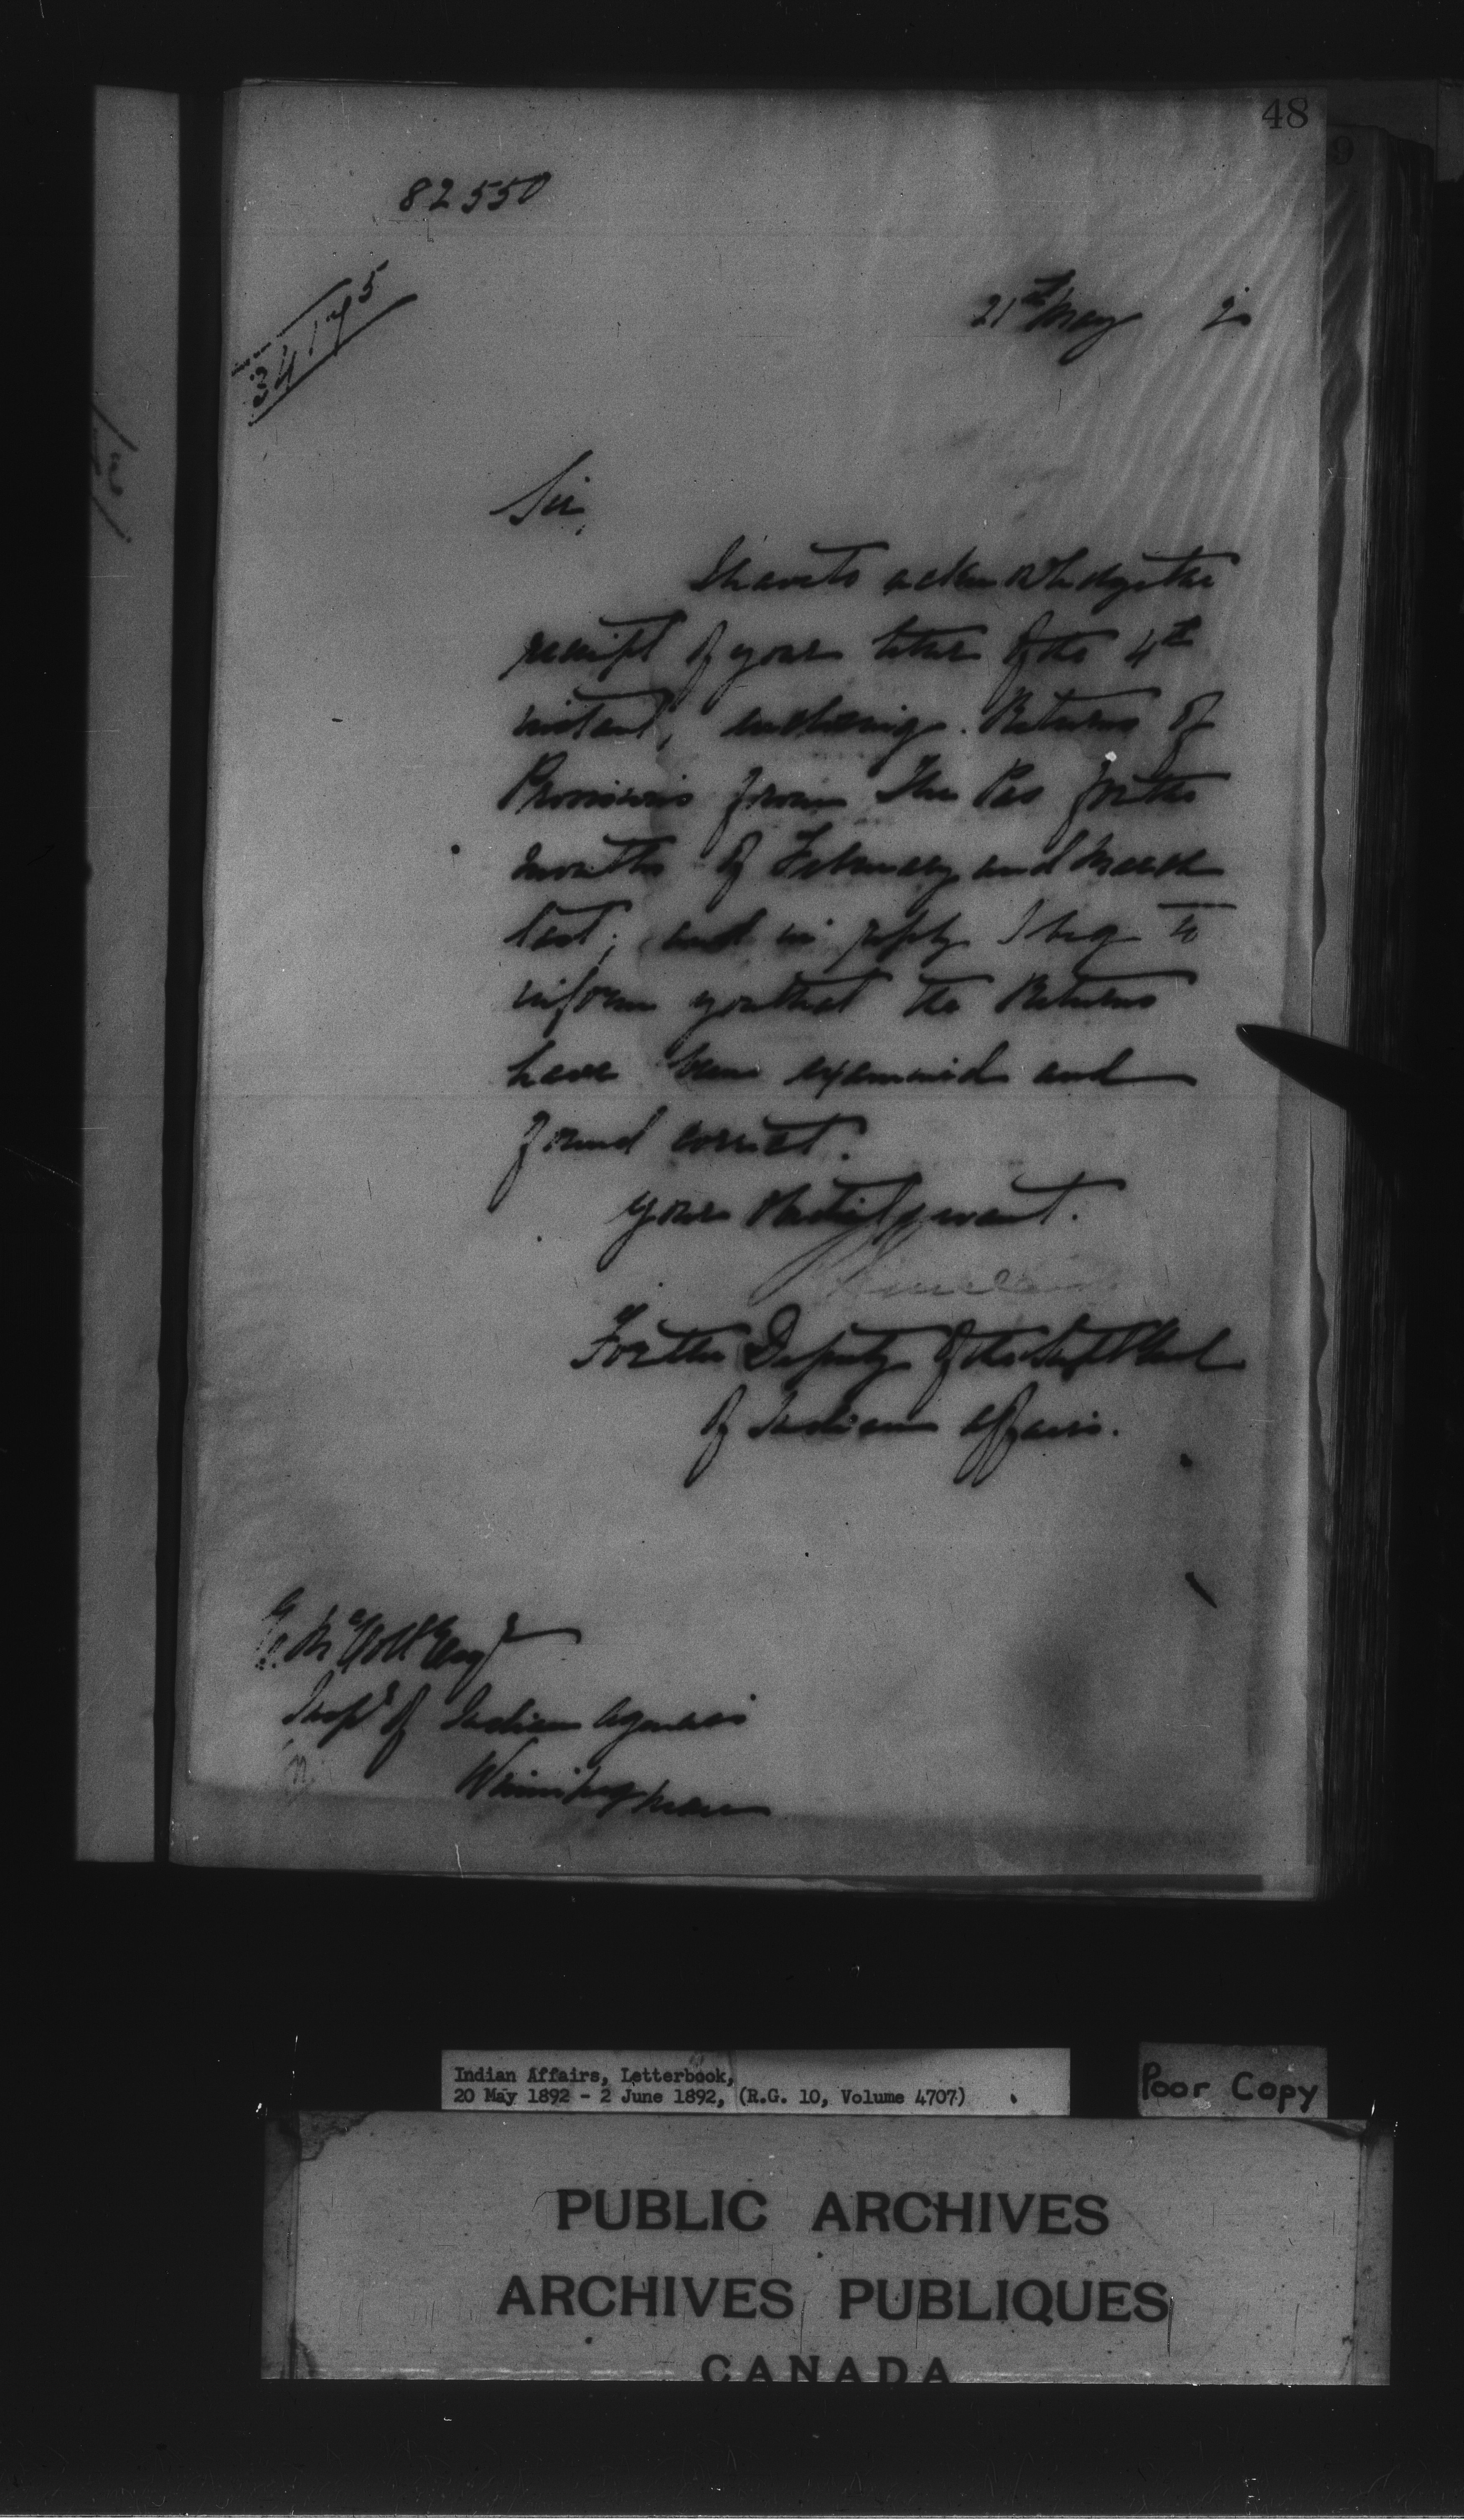 48
82550
34175
21st May 2
Sir,
I have to acknowledge the
receipt of your letter of the 4th
instant, enclosing Returns of
Provisions from The Pas for the
months of February and March
last; and in reply I beg to
inform you that the Returns
have been examined and
found correct.
Your obedient servant.
For the Deputy of the Supt Genl
of Indian Affairs.
E. McColl Esqr
Inspr of Indian Agencies
Winnipeg Man
Indian Affairs, Letterbook,
20 May 1892 - 2 June 1892, (R.G. 10, Volume 4707)
Poor Copy
PUBLIC ARCHIVES
ARCHIVES PUBLIQUES
CANADA